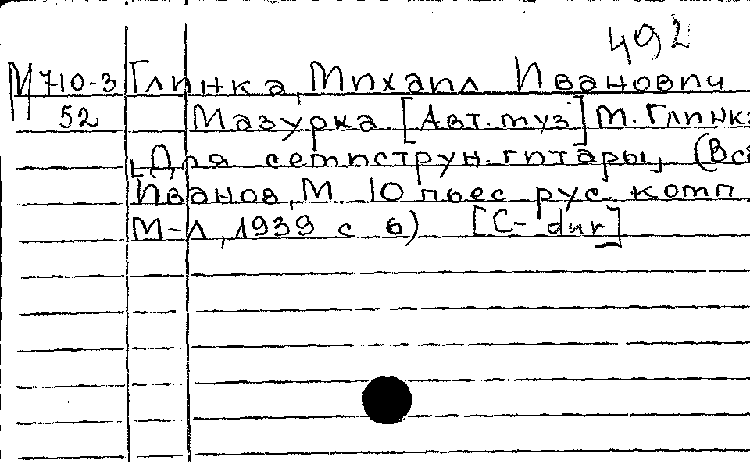 492
М 710-3 Глинка, Михаил Иванович
52 Мазурка [Авт. муз] М. Глинка
Для семиструн. гитары, (В сб
Иванов, М 10 пьес рус. комп
М-Л, 1939 с 6) [C-dur]